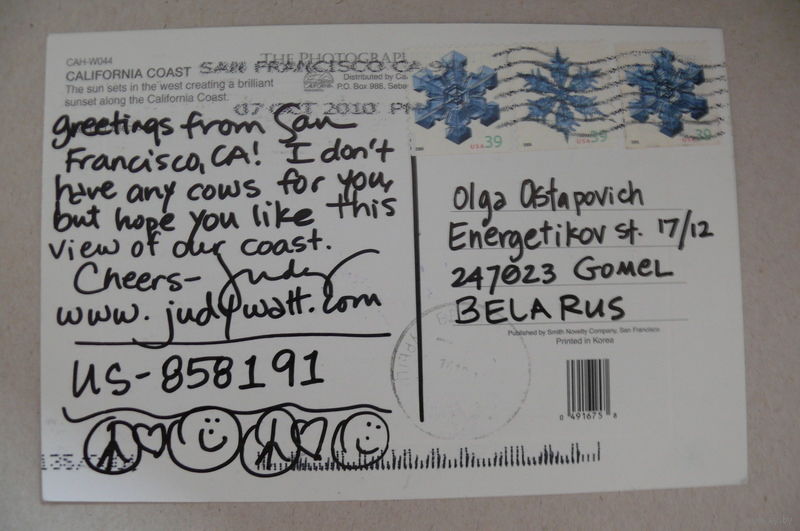 CAH-W044
CALIFORNIA COAST
The sun sets in the west creating a brilliant
sunset along the California Coast.
THE PHOTOGRAP
Distributed by Ca
P.O. Box 986, Seba
SAN FRANCISCO CA
07 OCT 2010 PM
USA 39
USA 39
39
greetings from San
Francisco, CA! I don't
have any cows for you,
but hope you like this
view of our coast.
Cheers- Judy
www.judywatt.com
US-858191
Olga Ostapovich
Energetikov st. 17/12
247023 GOMEL
BELARUS
Published by Smith Novelty Company, San Francisco
Printed in Korea
0 491675 8